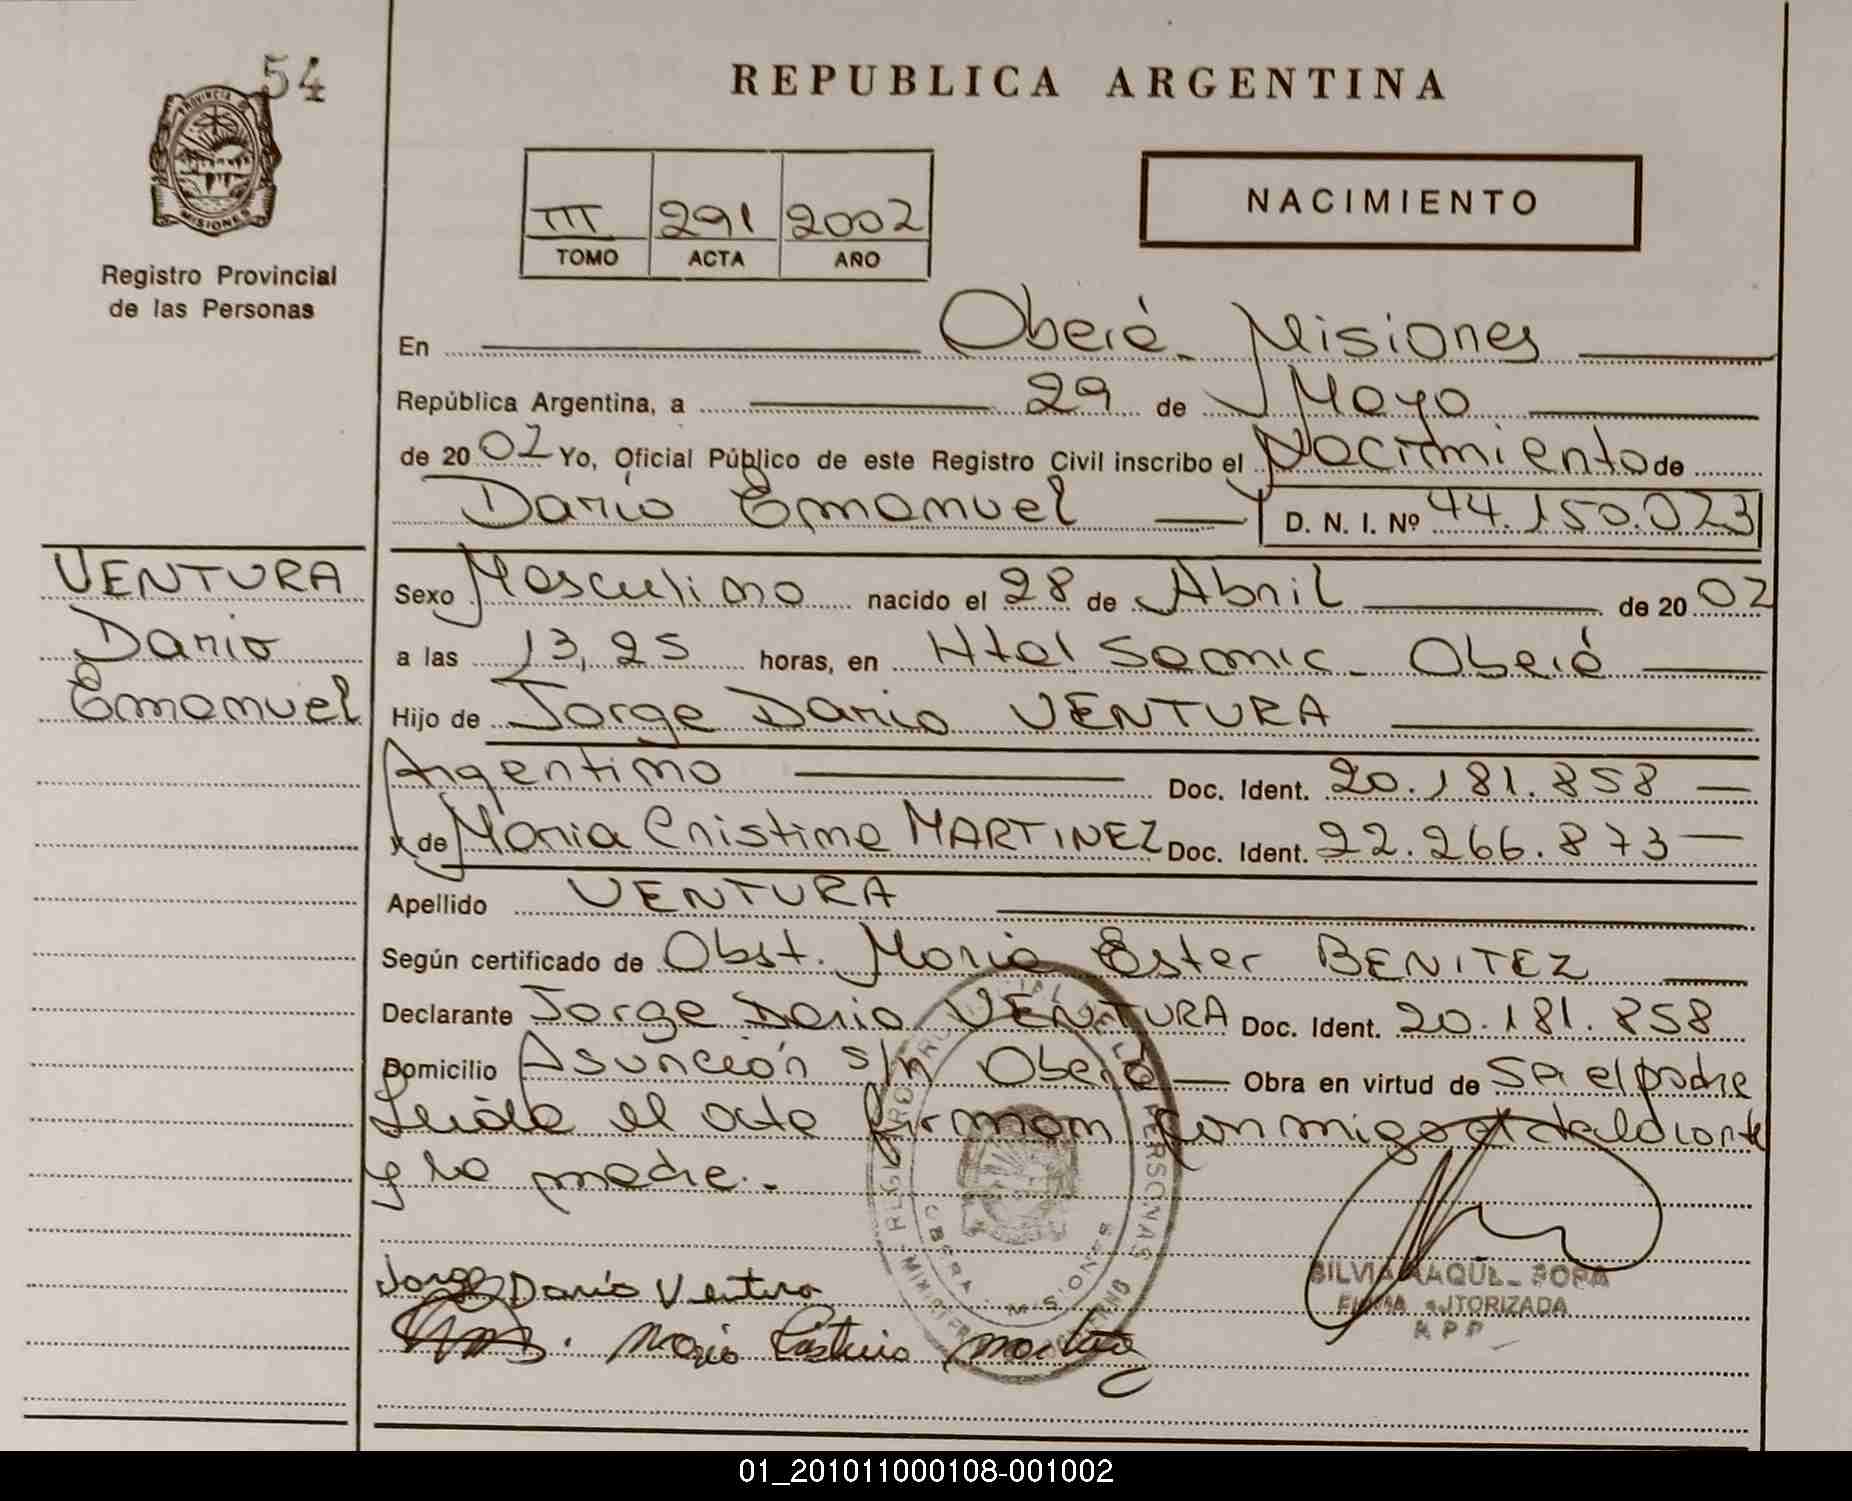 54
PROVINCIA DE
MISIONES
Registro Provincial
de las Personas
REPUBLICA ARGENTINA
III 291 2002
TOMO ACTA AÑO
NACIMIENTO
En Oberá - Misiones
República Argentina, a 29 de Mayo
de 2002 Yo, Oficial Público de este Registro Civil inscribo el Nacimiento de
Darío Emanuel D. N. I. Nº 44.150.023
VENTURA
Dario
Emanuel
Sexo Masculino nacido el 28 de Abril de 2002
a las 13,25 horas, en Htal Samic - Oberá
Hijo de Jorge Dario VENTURA
Argentino Doc. Ident. 20.181.858
y de Maria Cristina MARTINEZ Doc. Ident. 22.266.873
Apellido VENTURA
Según certificado de Obst. Maria Ester BENITEZ
Declarante Jorge Dario VENTURA Doc. Ident. 20.181.858
Domicilio Asunción s/n Oberá Obra en virtud de Ser el padre
Leida el acta firman conmigo el declarante
y la madre.-
REGISTRO PROVINCIAL DE LAS PERSONAS
OBERA MISIONES
Jorge Darío Ventura
Maria Cristina Martinez
SILVIA RAQUEL
FIRMA AUTORIZADA
RPP
01_201011000108-001002